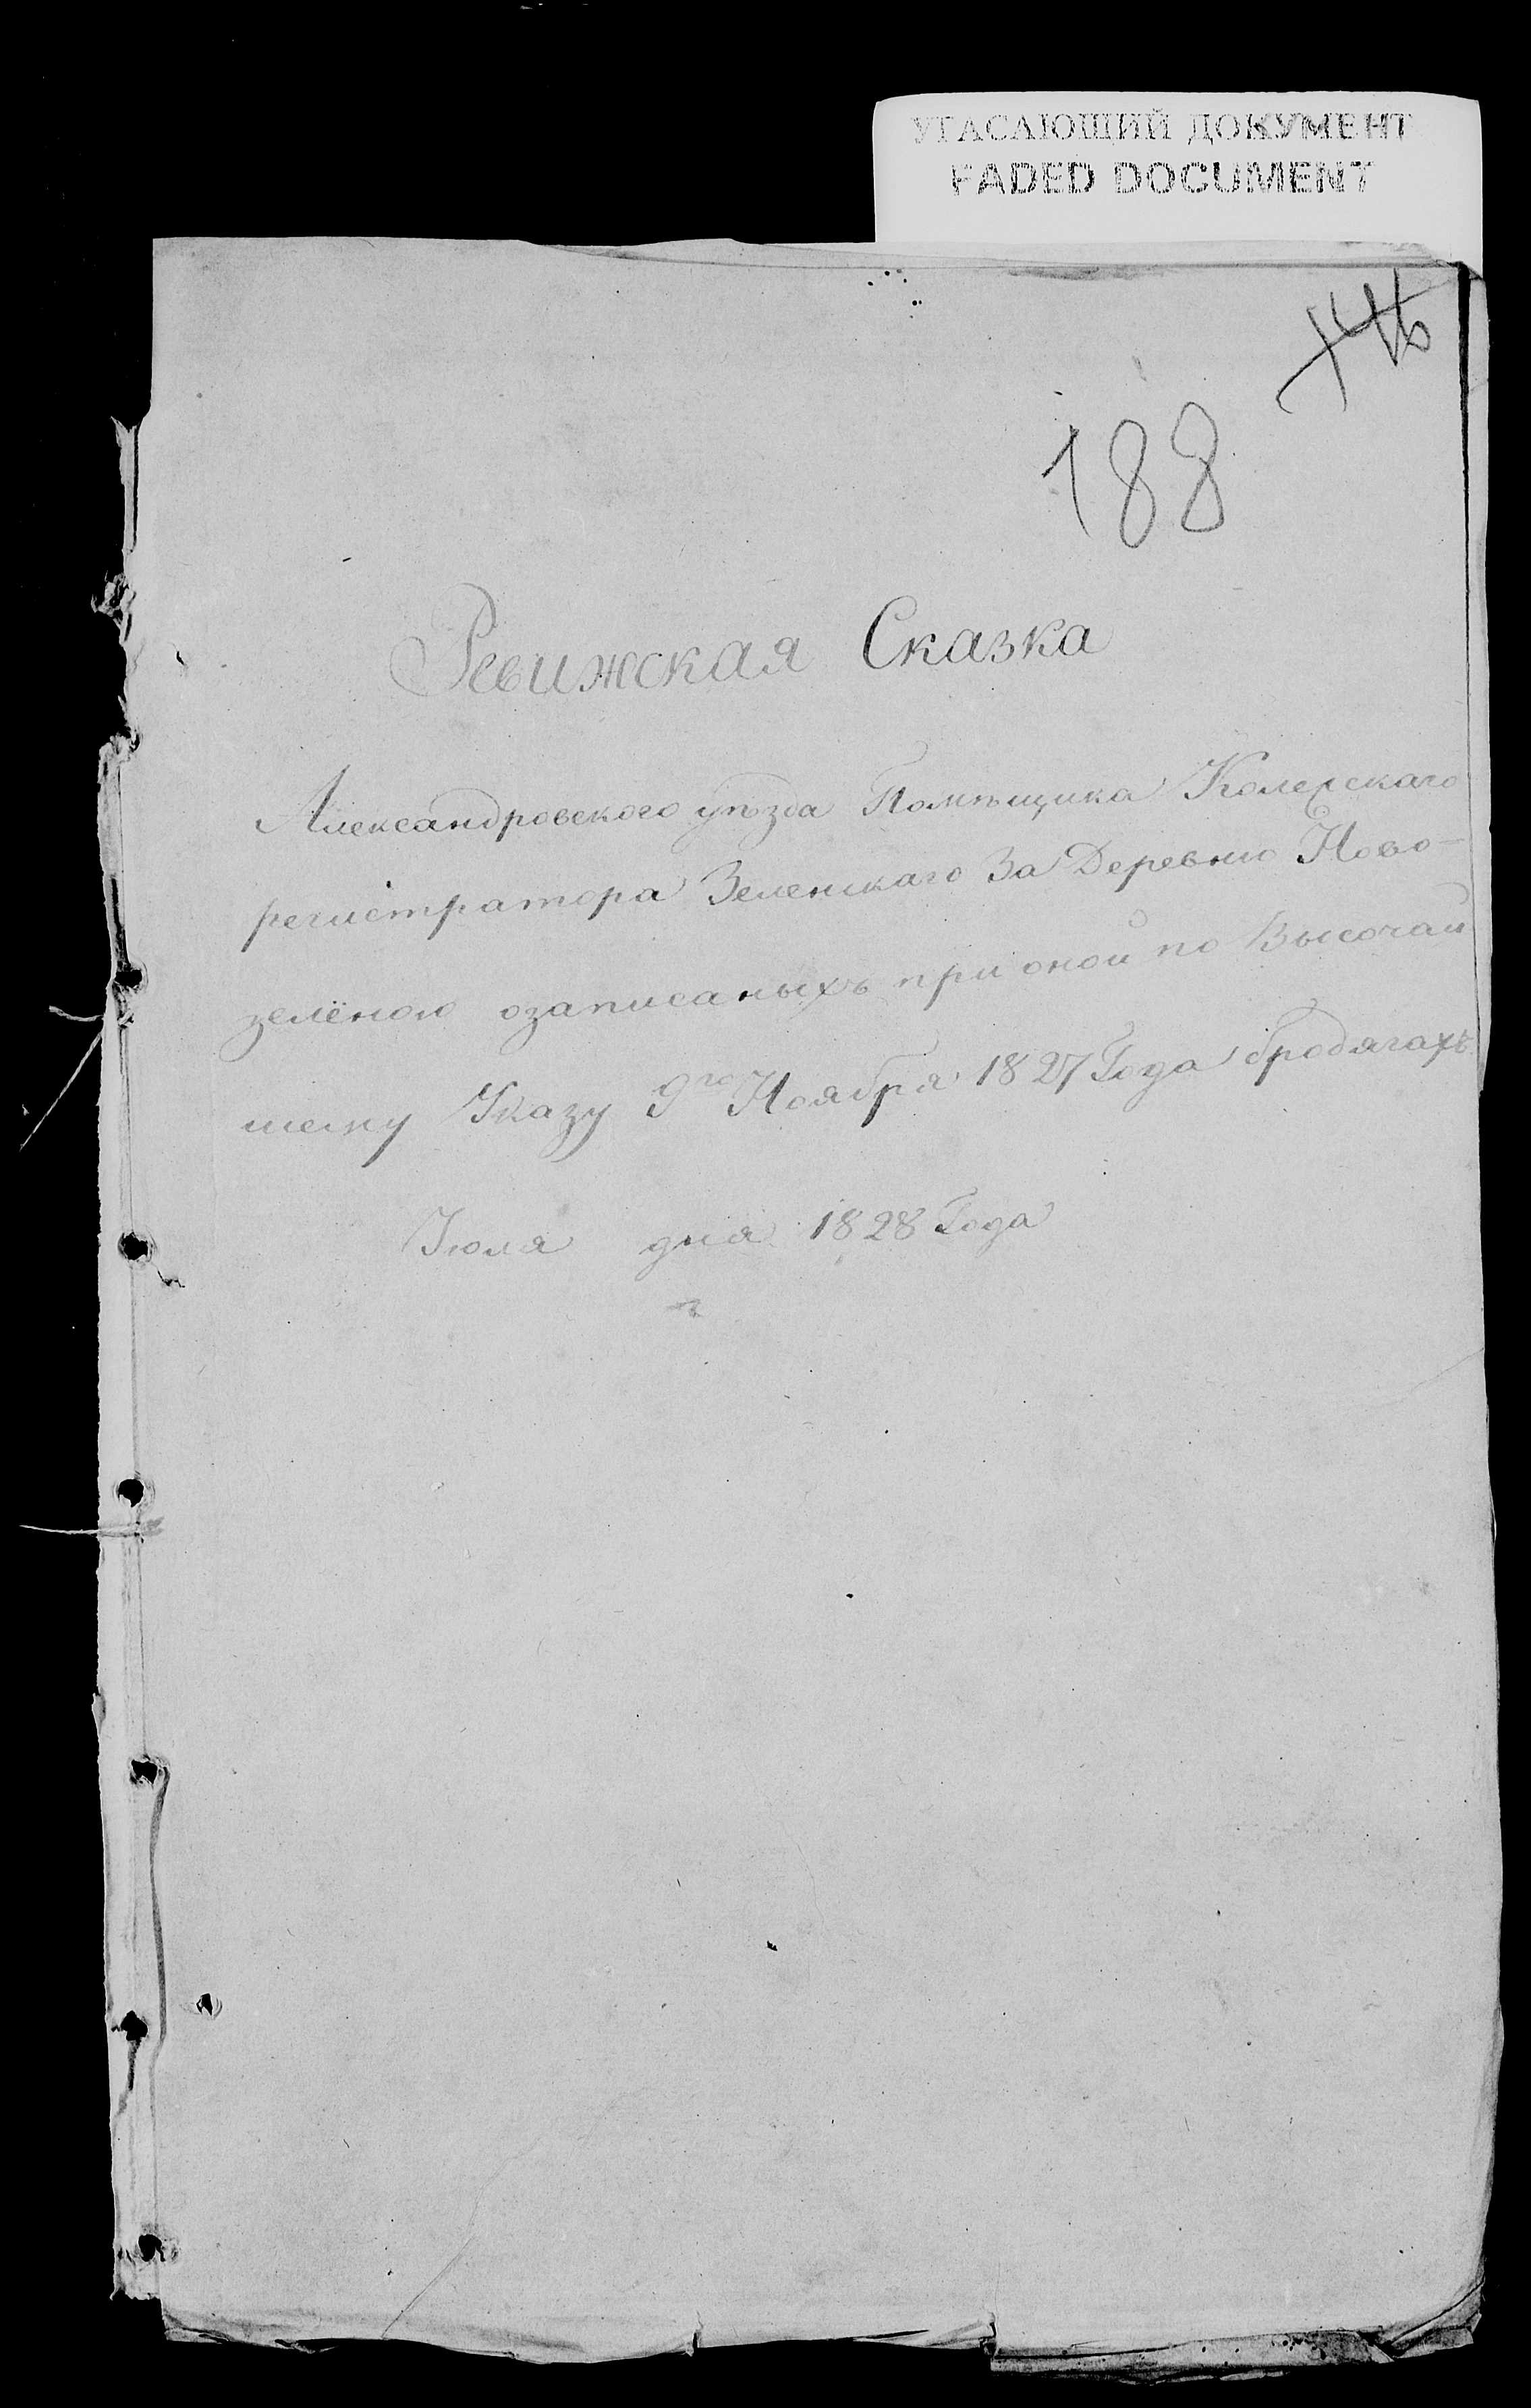 УГАСАЮЩИЙ ДОКУМЕНТ
FADED DOCUMENT
188
Ревижская Сказка
Александровского уѣзда Помѣщика Колежскаго
регистратора Зеленскаго За Деревню Ново-
зелёною озаписаныхъ при оной по Высочай
шему Указу 9го Ноября 1827 Года бродягахъ
Июля дня 1828 Года